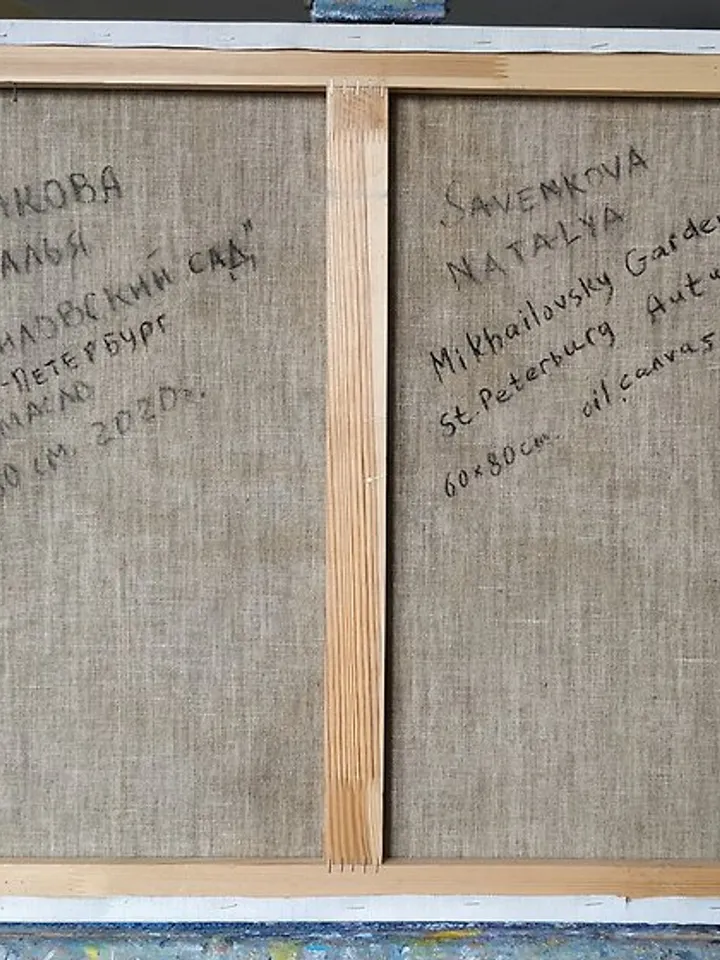 НКОВА
АЛЬЯ
ЙЛОВСКИЙ САД"
-ПЕТЕРБУРГ
МАСЛО
80 СМ. 2020г.
SAVENKOVA
NATALYA
Mikhailovsky Garden
St. Peterburg Autu
60x80cm. oil, canvas